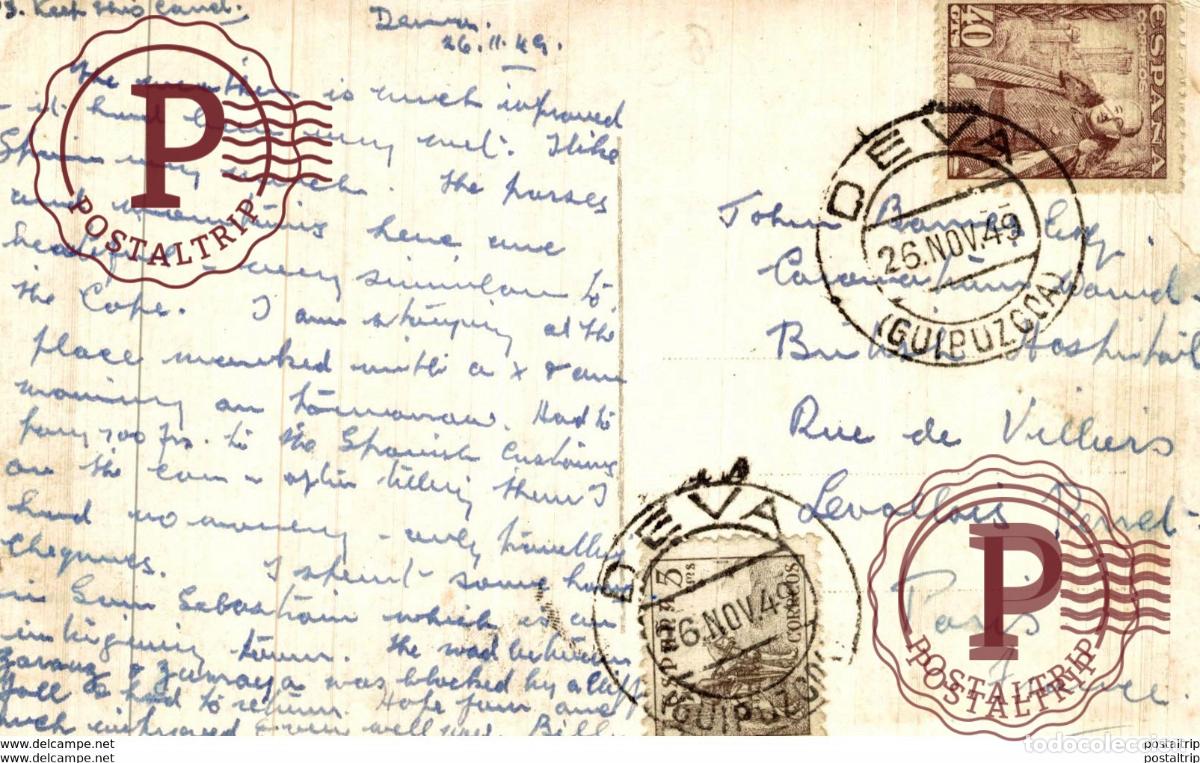 Keep this card.
26.11.49.
The weather is much improved
- it had been very wet. I like
Spain very much. The passes
and mountains here are
very similar to
the Cape. I am stopping at the
place marked with a x & am
moving on tomorrow. Had to
pay 700 frs. to the Spanish Customs
on the car - after telling them I
had no money - only travellers
cheques. I spent some hours
in San Sebastian which is an
intriguing town. The road between
Zarauz & Zumaya was blocked by a cliff
fall so had to return. Hope you are
much improved & very well now. Bill.
John Esq.
British Hospital
Rue de Villiers
Levallois Perret -
Paris
France.
ESPAÑA
CORREOS
40
CTS
DEVA
26.NOV.49
(GUIPUZCOA)
DEVA
26.NOV.49
(GUIPUZCOA)
5
CTS
CORREOS
P
POSTALTRIP
P
POSTALTRIP
POSTALTRIP
todocoleccion
www.todocoleccion.net
www.todocoleccion.net
postaltrip
postaltrip